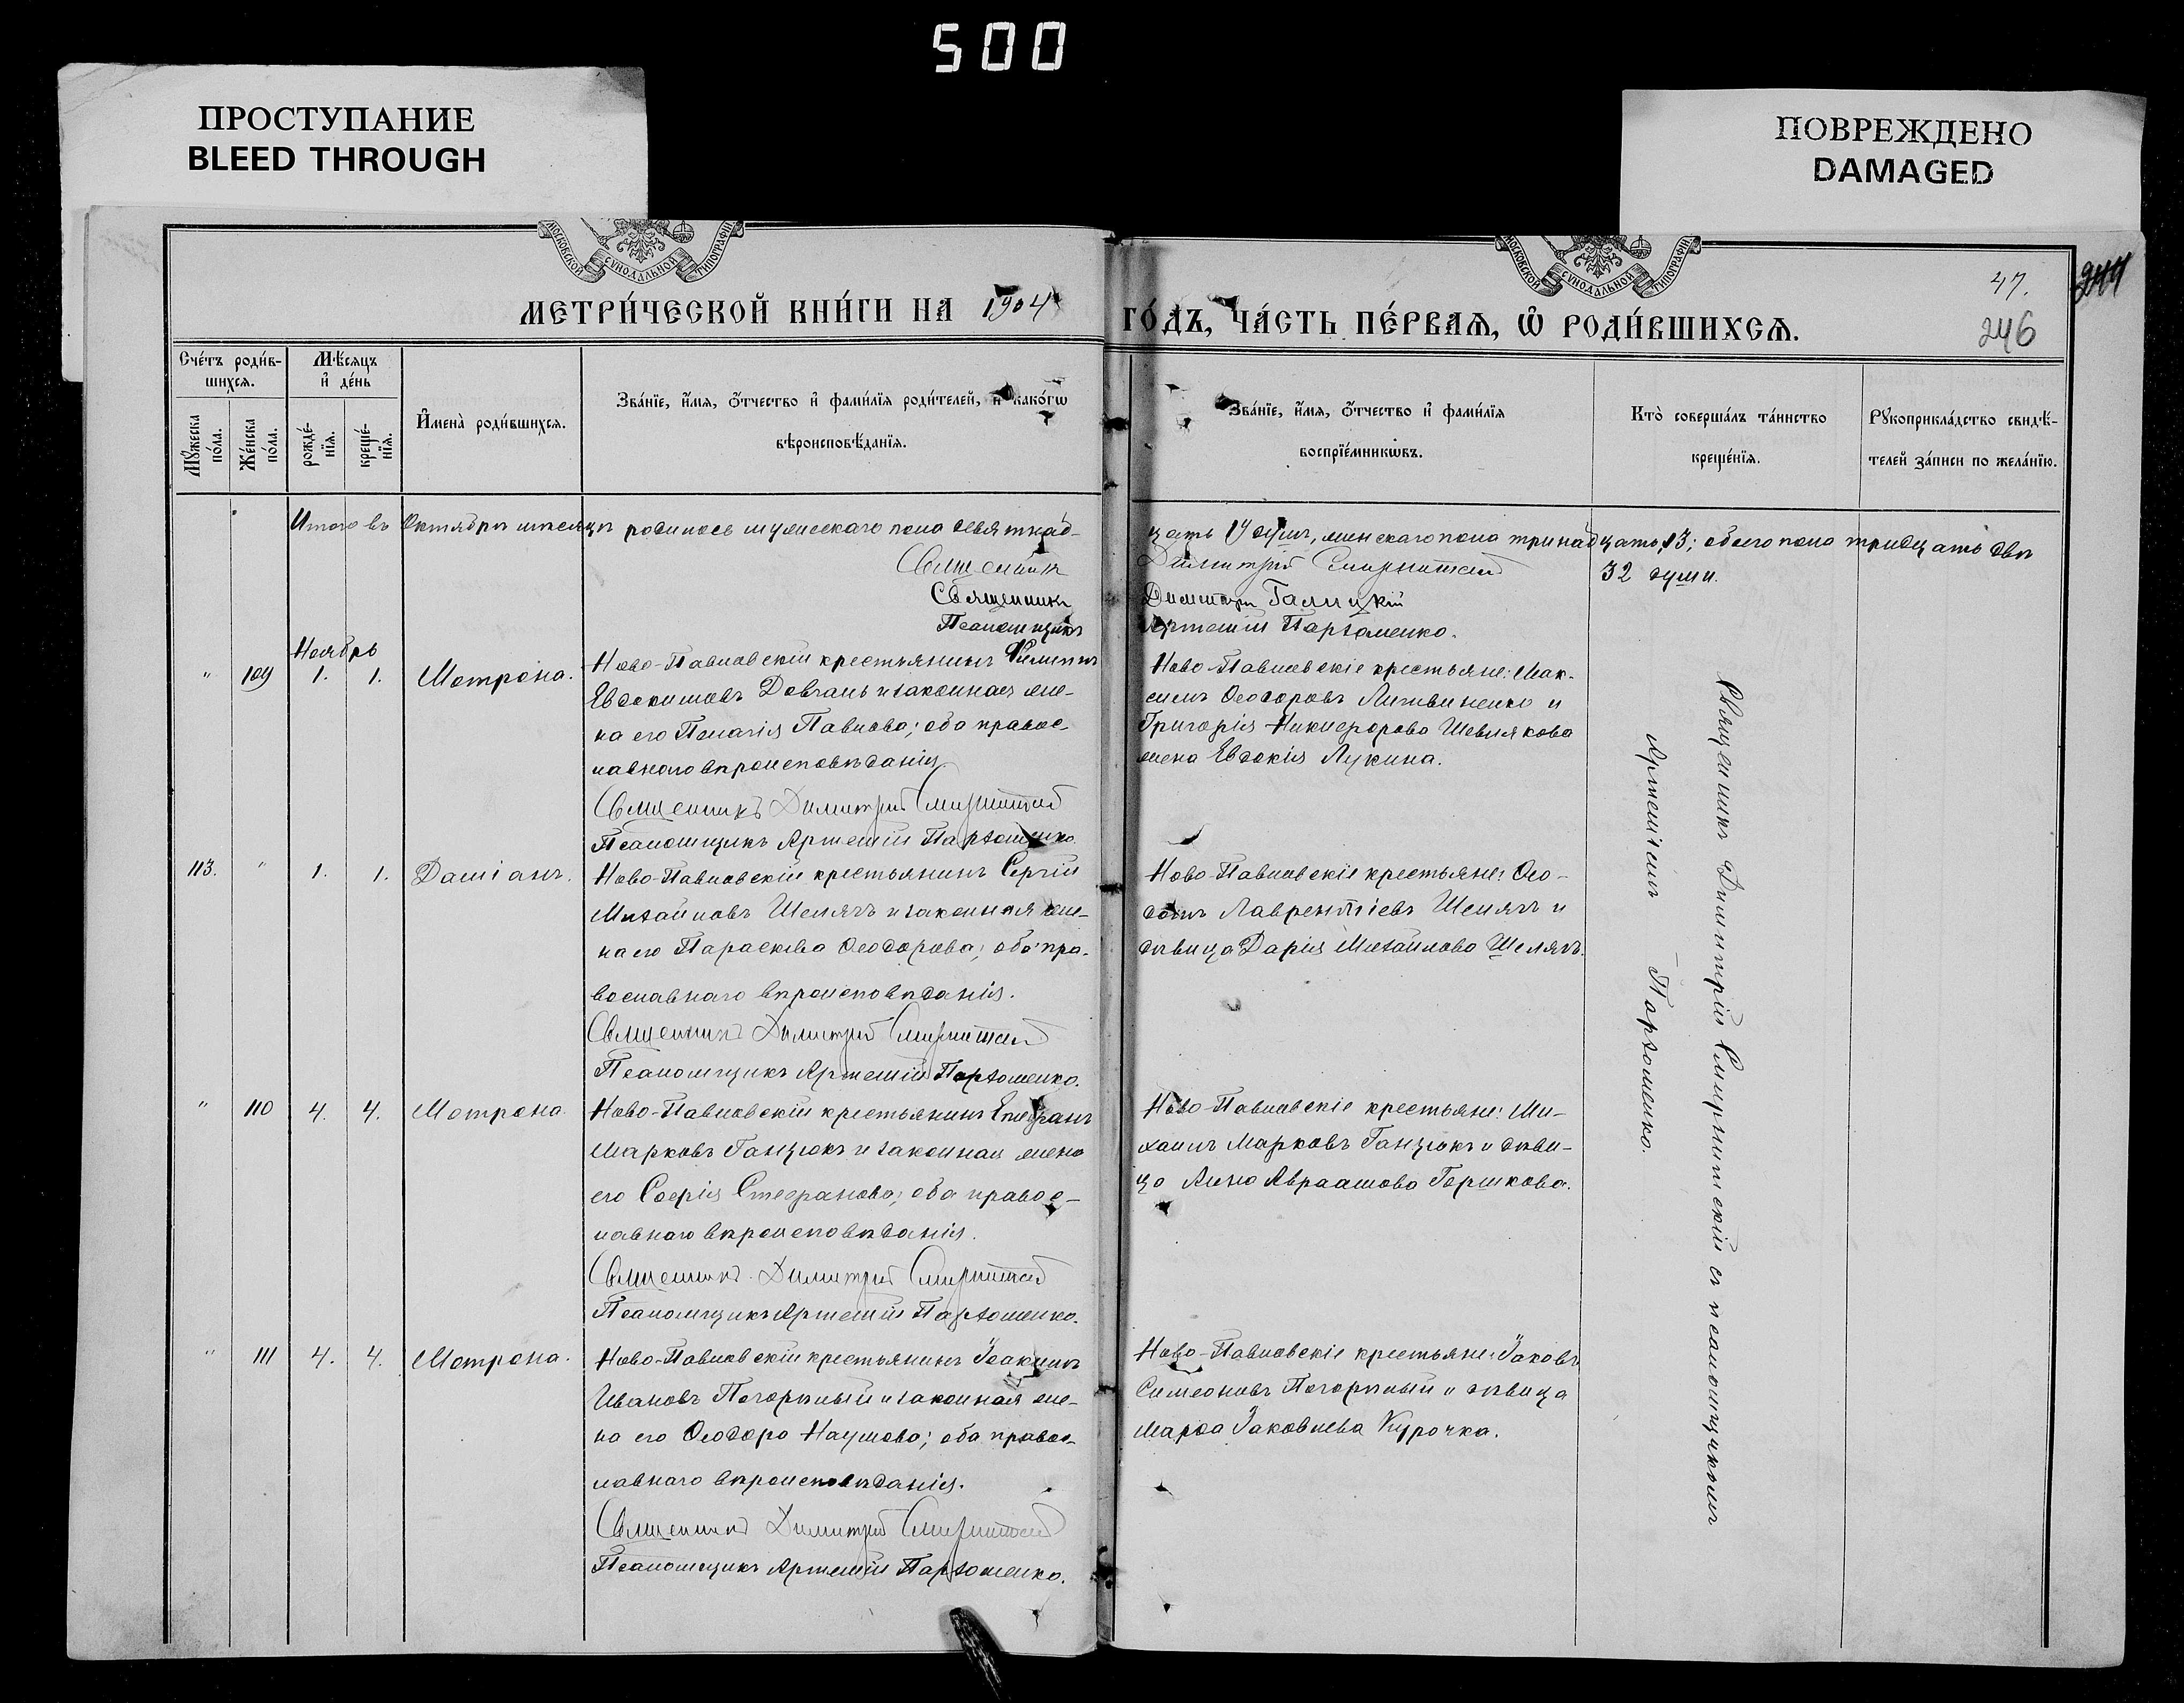 500
ПРОСТУПАНИЕ
BLEED THROUGH
ПОВРЕЖДЕНО
DAMAGED
МОСКОВСКОЙ СУНОДАЛЬНОЙ ТИПОГРАФІИ
МОСКОВСКОЙ СУНОДАЛЬНОЙ ТИПОГРАФІИ
47.
244
246
МЕТРИ́ЧЕСКОЙ КНИ́ГИ НА 1904 ГО́ДЪ, ЧА́СТЬ ПЕ́РВАѦ, Ѡ РОДИ́ВШИХСѦ.
Сче́тъ роди́в-
шихсѧ.
Мѣ́сѧцъ
и҆ де́нь
Мꙋ́жеска
по́ла.
Же́нска
по́ла.
рожде́-
нїѧ.
креще́-
нїѧ.
И҆мена̀ роди́вшихсѧ.
Зва́нїе, и҆́мѧ, ѻ҆́тчество и҆ фами́лїѧ роди́телей, и҆ како́гѡ
вѣроисповѣ́данїѧ.
Зва́нїе, и҆́мѧ, ѻ҆́тчество и҆ фами́лїѧ
воспрїе́мникѡвъ.
Кто̀ соверша́лъ та́инство
креще́нїѧ.
Рꙋкоприкла́дство свидѣ́-
телей за́писи по жела́нїю.
Итого въ Октябрѣ мѣсяцѣ родилось мужескаго пола девятнад-
цать 19 душъ, женскаго пола тринадцать 13; обоего пола тридцать двѣ
32 души.
Священникъ Димитрій Смирнитскій
Священникъ Димитрій Галицкій
Псаломщикъ Артемій Пархоменко.
Ноябрь
" 109 1. 1. Мотрона.
Ново-Павловскій крестьянинъ Филиппъ
Евдокимовъ Довгань и законная же-
на его Пелагія Павлова; оба правос-
лавнаго вѣроисповѣданія.
Священникъ Димитрій Смирнитскій
Псаломщикъ Артемій Пархоменко.
Ново-Павловскіе крестьяне: Мак-
симъ Ѳеодоровъ Литвиненко и
Григорія Никифорова Шевлякова
жена Евдокія Лукина.
113. " 1. 1. Даміанъ.
Ново-Павловскій крестьянинъ Сергій
Михайловъ Шелягъ и законная же-
на его Параскева Ѳеодорова; оба пра-
вославнаго вѣроисповѣданія.
Священникъ Димитрій Смирнитскій
Псаломщикъ Артемій Пархоменко.
Ново-Павловскіе крестьяне: Ѳео-
дотъ Лаврентіевъ Шелягъ и
дѣвица Дарія Михайлова Шелягъ.
" 110 4. 4. Мотрона.
Ново-Павловскій крестьянинъ Епифанъ
Марковъ Ганзюкъ и законная жена
его Софія Стефанова; оба правос-
лавнаго вѣроисповѣданія.
Священникъ Димитрій Смирнитскій
Псаломщикъ Артемій Пархоменко.
Ново-Павловскіе крестьяне: Ми-
хаилъ Марковъ Ганзюкъ и дѣви-
ца Анна Авраамова Горшкова.
" 111 4. 4. Мотрона.
Ново-Павловскій крестьянинъ Іоакимъ
Ивановъ Погорѣлый и законная же-
на его Ѳеодора Наумова; оба правос-
лавнаго вѣроисповѣданія.
Священникъ Димитрій Смирнитскій
Псаломщикъ Артемій Пархоменко.
Ново-Павловскіе крестьяне: Іаковъ
Симеоновъ Погорѣлый и дѣвица
Марѳа Іаковлева Курочка.
Священникъ Димитрій Смирнитскій съ псаломщикомъ
Артеміемъ Пархоменко.